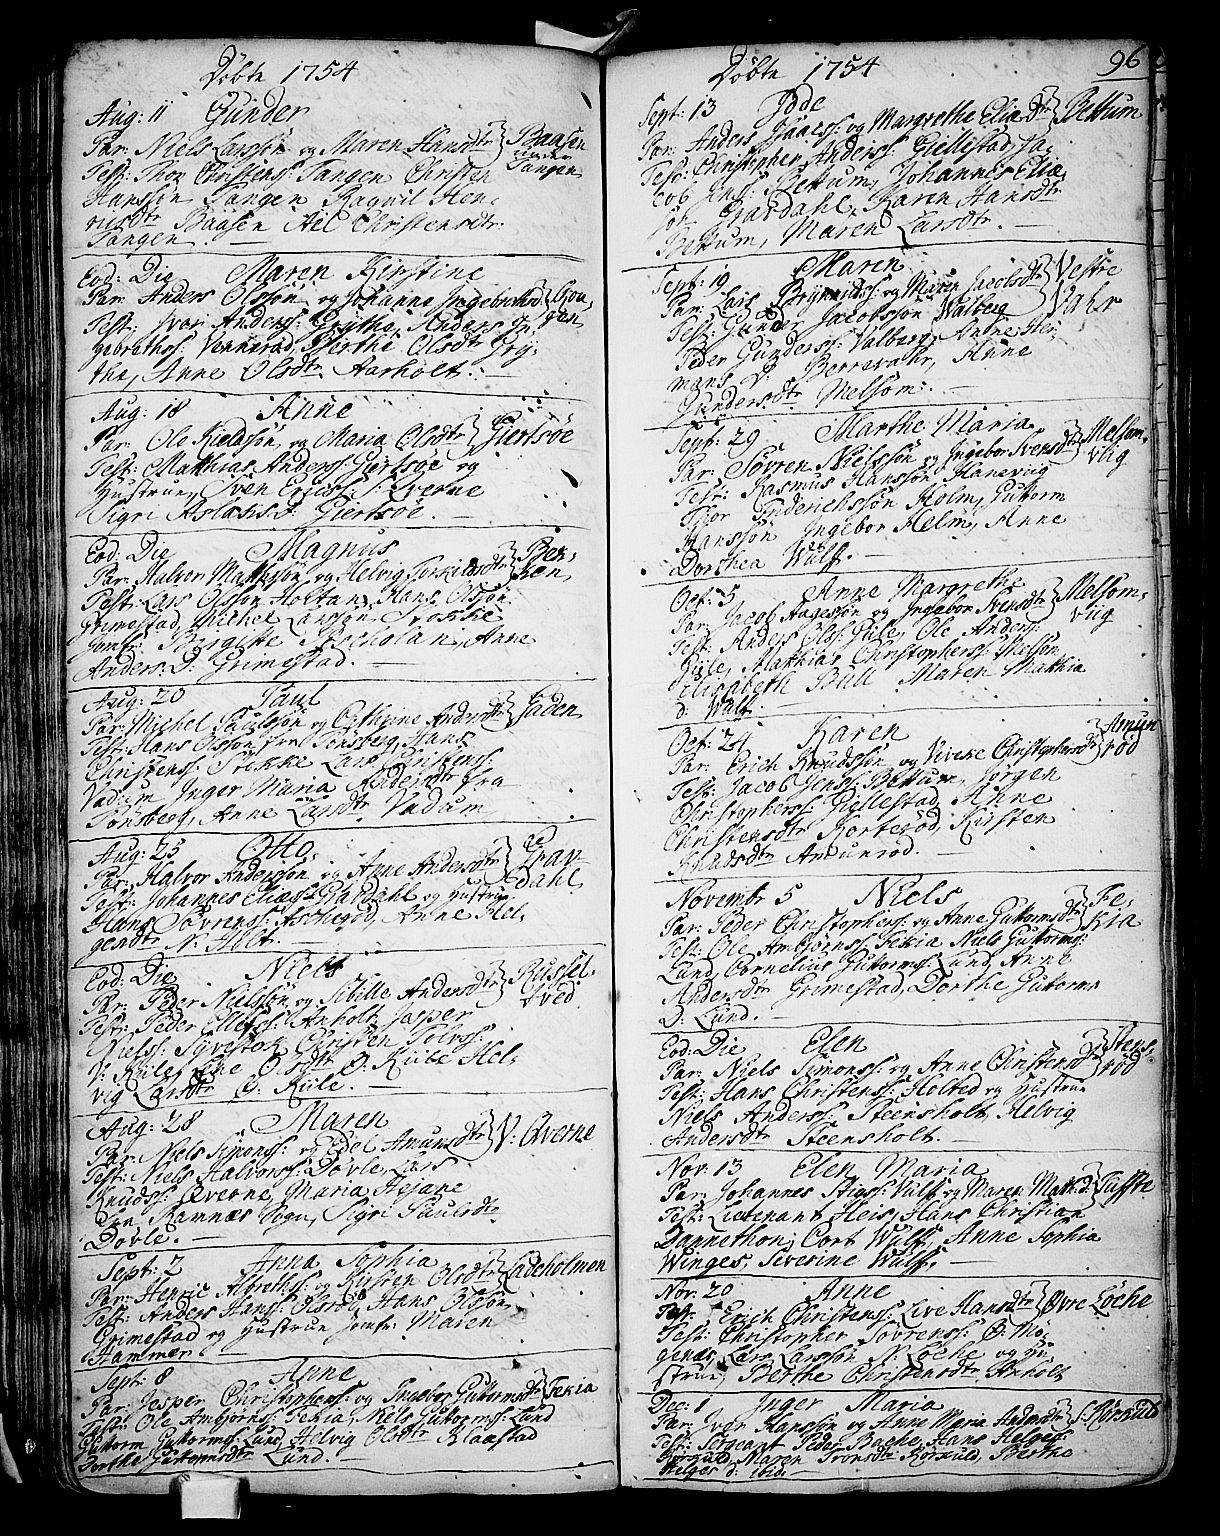 Døbte 1754
Aug: 11 Gunder
Par: Niels Larssøn og Maren Hansdtr } Baasen
Test: Thor Christens: Tangen Christen under
Hanssøn Tangen Ragnil Hen= Tangen
ricsdtr Baasen Ael Christensdtr
Tangen. —
Eod: Die Maren Kirstine
Par: Anders Olssøn og Johanne Ingebrethsd
Test: Ivar Anderss: Grythe, Anders In=
gebrethss: Vennerød, Berthe Olsdtr Gry=
the, Anne Olsdtr Aarholt. —
Aug: 18 Anne
Par: Ole Kieldsøn, og Maria Olsdtr } Giertsøe
Test: Matthias Anderss: Giertsøe og
Hustrue, Sven Ericss: S: Qverne
Sigri Aslachs: D: Giertsøe. —
Eod: Die Magnus
Par: Halvor Mathissøn, og Helvig Torkildsdtr } Bec=
Test: Lars Olssøn Holtan, Hans Olssøn ken
Grimestad, Michel Larssøn Stokke
Jomfr: Birgitte Nicholai, Anne
Anders: D: Grimestad. —
Aug: 20 Paul
Par: Michel Paulssøn og Cathrine Andersdtr } Faden
Test: Hans Olssøn fra Tønsberg, Hans
Christens: Stokke Lars Christens:
Vadum Inger Maria Andersdtr fra
Tønsberg, Anne Larsdtr Vadum
Aug: 25 Otto
Par: Halvor Anderssøn og Anne Andersdtr } Grav=
Test: Johannes Eliæs: Gravdahl og Hustrue dahl
Hans Søvrens: Aschegød, Anne Hel=
gesdtr N: Hilt.
Eod: Die Niels
Par: Peder Nielssøn og Sibille Andersdtr } Russel=
Test: Peder Ellefs: Anholt Jasper tved
Nielss: Syvestok Christen Tolvss:
V: Kiile Eline Olsdtr Ø: Kiile Hel=
vig Larsdtr Ø: Kiile. —
Aug: 28 Maren
Par: Niels Simonss: og Edel Amundsdtr } V: Qverne
Test: Niels Halvorss: Døvle, Lars
Knudss: Qverne, Maria Hesane
fra Ramnæs Sogn, Sigri Paulsdtr
Døvle. —
Sept: 2 Anna Sophia
Par: Henric Albreths: og Kirsten Olsdtr } Ladeholmen
Test: Anders Hanss: Olsrød, Hans Olssøn
Grimestad og Hustrue Jomfr: Maren
Hammer
Sept: 8 Anne
Par: Jesper Christophers: og Ingebor Guttormsdtr } Fekia
Test: Ole Ambjørns: Fekia, Niels Guttorms: Lund
Guttorm Guttorms: Lund, Helvig Olsdtr Klaastad
Dorthe Guttormsdtr Lund. —
Døbte 1754 96
Sept: 13 Jøde
Par: Anders Isaacss: og Margrethe Eliæ Dtr } Bettum
Test: Christopher Anderss: Giellestad, Ja=
cob Jenss: Bettum, Johannes Eliæ
søn Gravdahl, Karen Hansdtr
Bettum, Maren Larsdtr. —
Sept: 19 Maren
Par: Lars Brynnilds: og Maren Jacobsdtr } Vestre
Test: Gunder Jacobssøn Valberg Vahr
Peder Gunderss: Valberg, Anne Her=
mans D: Berrevahr, Anne
Gundersdtr Melsom. —
Sept: 29 Marthe Maria
Par: Søvren Nielssøn og Ingebor Svensdtr } Melsom=
Test: Rasmus Hanssøn Haneviig viig
Thor Friderichssøn Holm, Guttorm
Hanssøn Ingebor Helm, Anne
Dorthea Wulf. —
Oct: 5 Anne Margrethe
Par: Jacob Aagessøn og Ingebor Svensdtr } Melsom=
Test: Anders Olss: Giile, Ole Anders: viig
Giile, Matthias Christophers: Melsom
Elisabeth Bull Maren Mathia
d: Wulf. —
Oct: 24 Karen
Par: Erich Knudssøn og Viveke Christophersdtr } Amun
Test: Jacob Jenss: Bettum, Jørgen rød
Christophers: Giellestad, Anne
Christensdtr Kortegød, Kirsten
Knudsdtr Amunrød. —
Novembr 5 Niels
Par: Peder Christophers: og Anne Guttormsdtr } Fe=
Test: Ole Ambjørnss: Fekia Niels Guttorms: kia
Lund, Cornelius Guttorms: Lund, Anne
Andersdtr Grimestad, Dorthe Guttorms
D: Lund. —
Eod: Die Elen
Par: Niels Simonss: og Anne Christensdtr } Stens=
Test: Hans Christens: Holted og Hustrue rød
Niels Anderss: Steensholt, Helvig
Andersdtr Steensholt. —
Nov: 13 Elen Maria
Par: Johannes Stigss: Wulf og Maren Mathis d: } Tuffte
Test: Lieutenant Heis, Hans Christian
Dannethon, Cort Wulf, Anne Sophia
Winges, Severine Wulf. —
Nov: 20 Anne
Par: Erich Christens: Live Hansdtr } Øvre Løche
Test: Christopher Søvrenss: Ø: Mø=
genæs, Lars Larssøn N: Løche og Hu
strue, Berthe Christensdtr Anholt
Dec: 1 Inger Maria
Par: Iver Hanssøn og Anne Maria Andersdtr } S: Rørkuld
Test: Sergeant Peder Bache, Hans Helges:
Rørkuld, Maren Tronsdtr Rørkuld, Berthe
Helges d: ibid. —